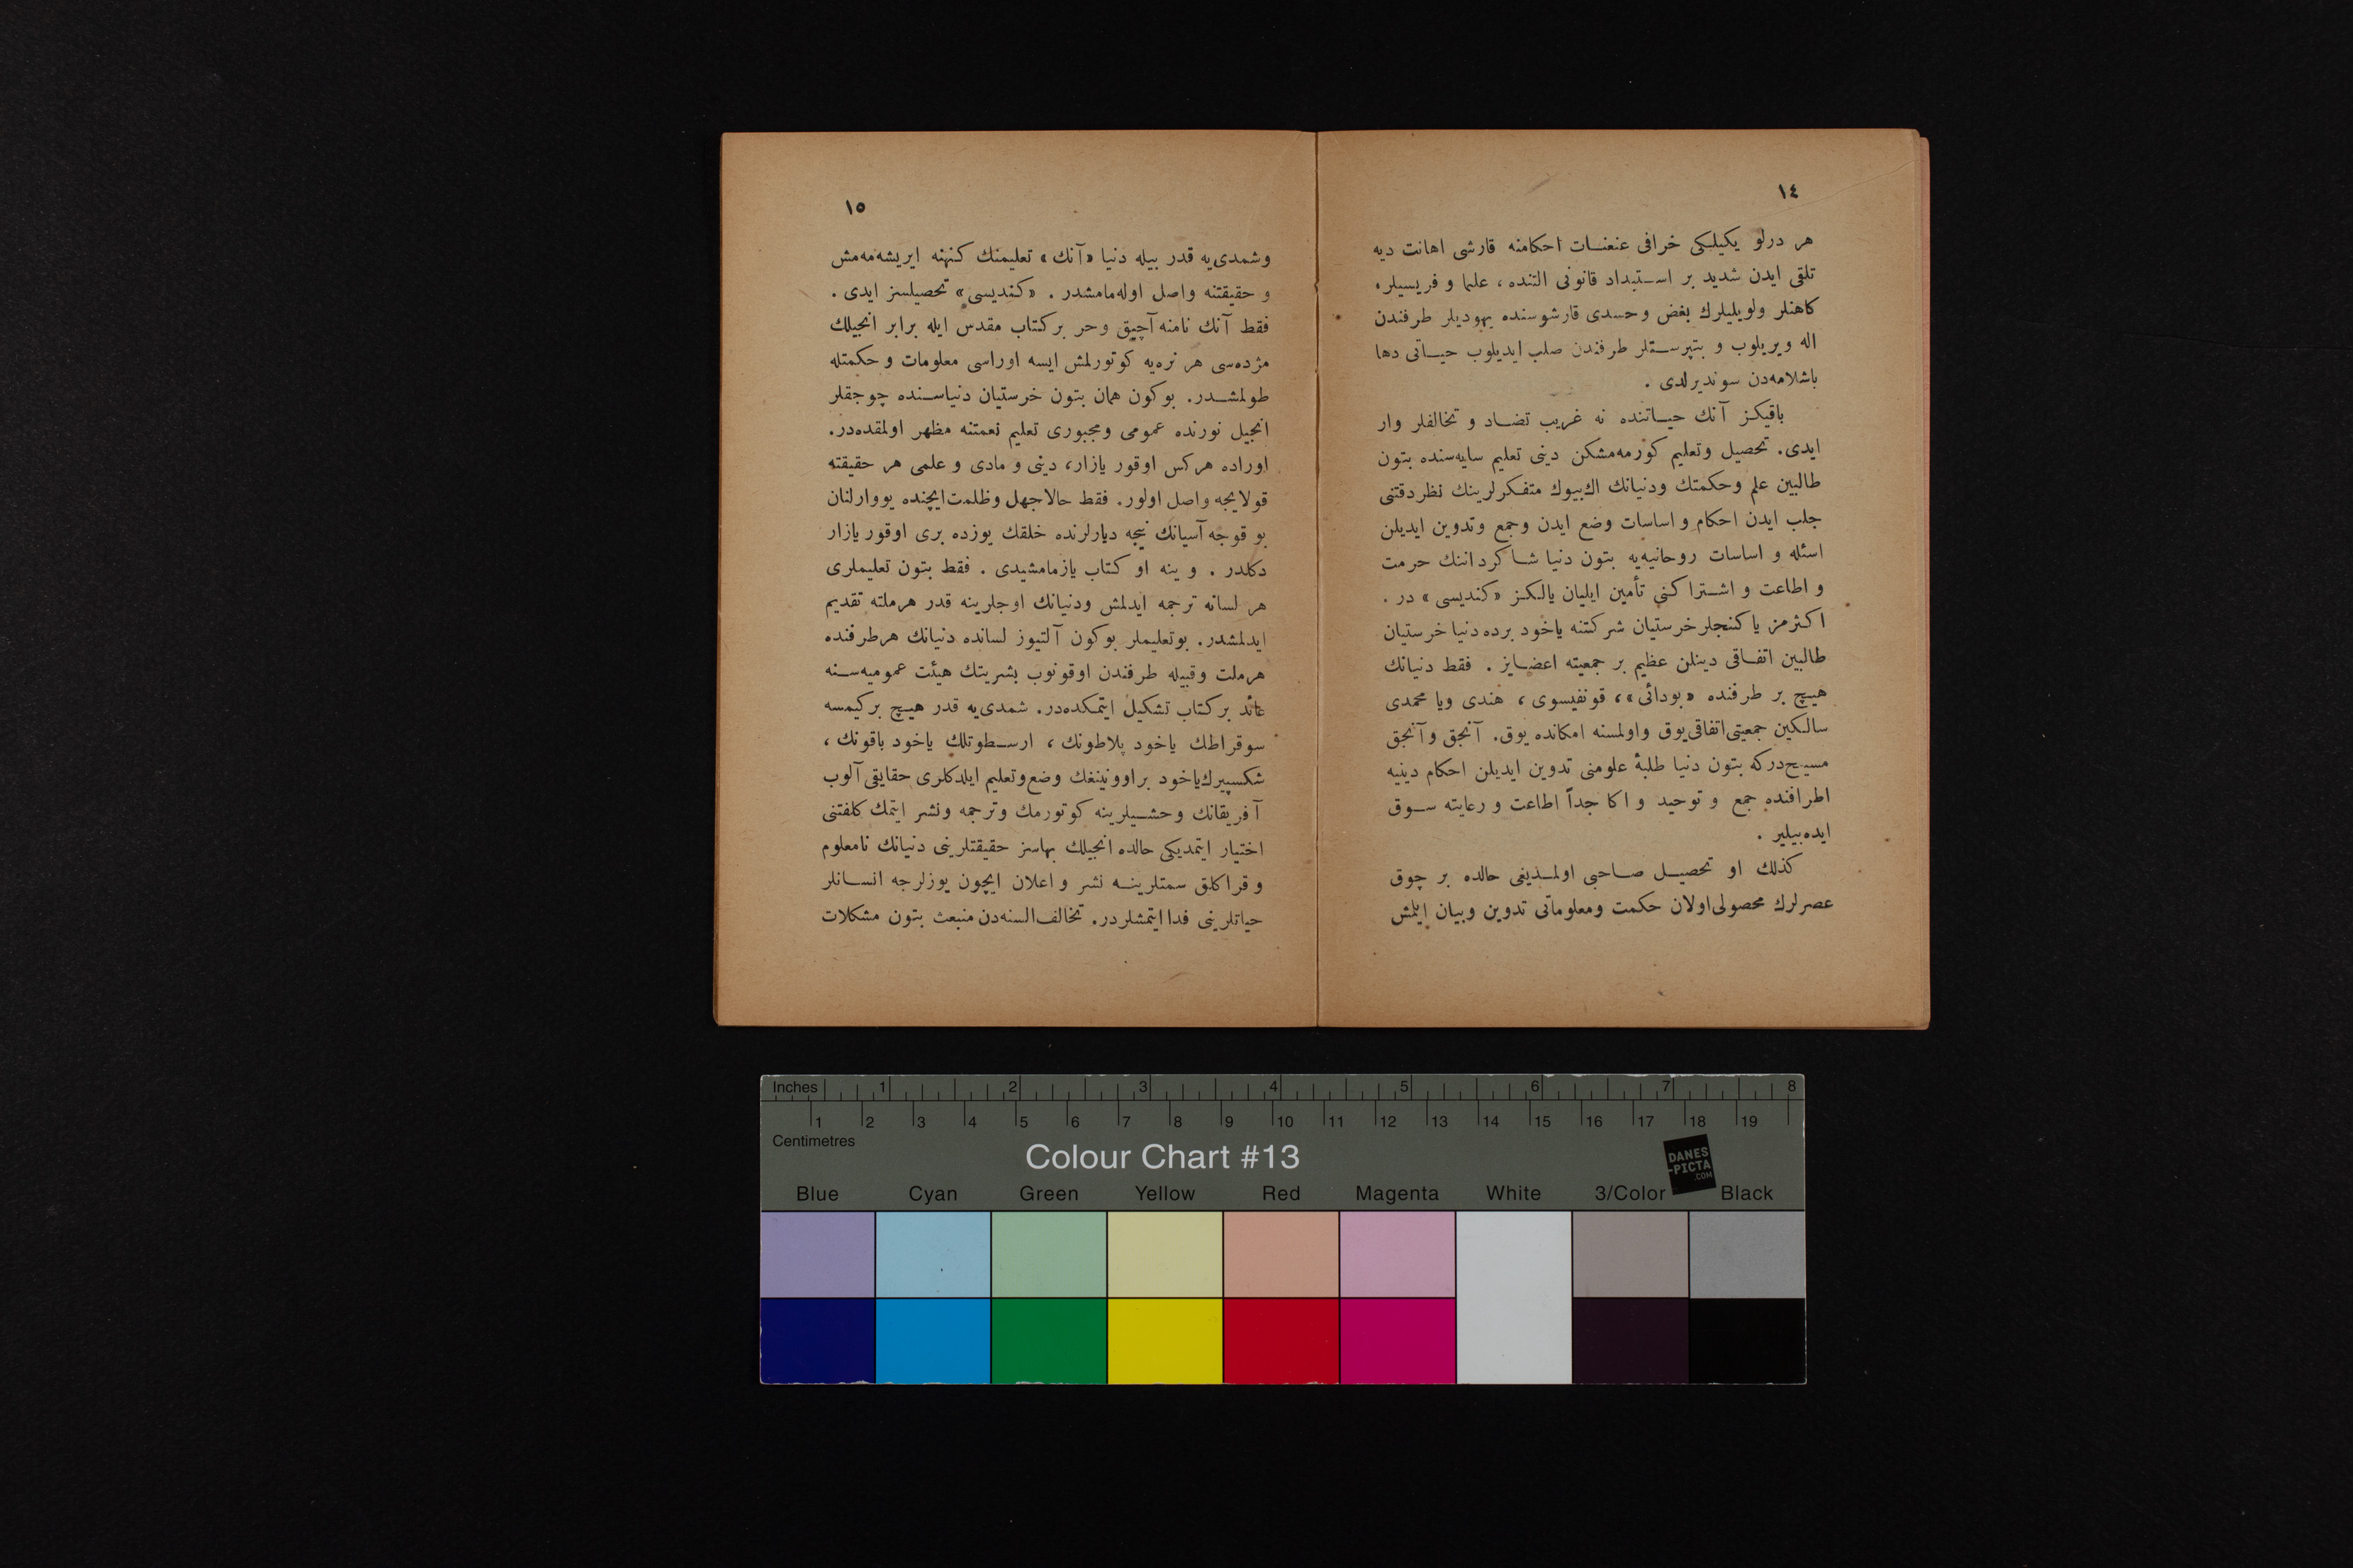 ١٤
هر درلو يكيلكى خرافى عنعنات احكامنه قارشى اهانت ديه
تلقى ايدن شديد بر استبداد قانونى التنده ، علما و فريسيلر،
كاهنلر ولويليلرك بغض وحسدى قارشوسنده يهوديلر طرفندن
اله ويريلوب و بتپرستلر طرفندن صلب ايديلوب حياتى دها
باشلامه‌دن سونديرلدى .
باقيكز آنك حياتنده نه غريب تضاد و تخالفلر وار
ايدى. تحصيل وتعليم كورمه‌مشكن دينى تعليم سايه‌سنده بتون
طالبين علم وحكمتك ودنيانك اك‌بيوك متفكرلرينك نظردقتنى
جلب ايدن احكام و اساسات وضع ايدن وجمع وتدوين ايديلن
اسئله و اساسات روحانيه‌يه بتون دنيا شاكرداننك حرمت
و اطاعت و اشتراكنى تأمين ايليان يالكز «كنديسى» در .
اكثرمز يا كنجلر خرستيان شركتنه ياخود برده دنيا خرستيان
طالبين اتفاقى دينلن عظيم بر جمعيته اعضايز . فقط دنيانك
هيچ بر طرفنده «بودائى»، قونفيسوى ، هندى ويا محمدى
سالكين جمعيتى‌اتفاقى‌يوق واولمسنه امكانده يوق. آنجق وآنجق
مسيح‌دركه بتون دنيا طلبهٔ علومنى تدوين ايديلن احكام دينيه
اطرافنده جمع و توحيد و اكا جداً اطاعت و رعايته سوق
ايده‌بيلير .
كذلك او تحصيل صاحبى اولمديغى حالده بر چوق
عصرلرك محصولى‌اولان حكمت ومعلوماتى تدوين وبيان ايتمش
١٥
وشمدى‌يه قدر بيله دنيا «آنك» تعليمنك كنهنه ايريشه‌مه‌مش
و حقيقتنه واصل اوله‌مامشدر . «كنديسى» تحصيلسز ايدى .
فقط آنك نامنه آچيق وحر بركتاب مقدس ايله برابر انجيلك
مژده‌سى هر نره‌يه كوتورلمش ايسه اوراسى معلومات و حكمتله
طولمشدر. بوكون همان بتون خرستيان دنياسنده چوجقلر
انجيل نورنده عمومى ومجبورى تعليم نعمتنه مظهر اولمقده‌در.
اوراده هركس اوقور يازار، دينى و مادى و علمى هر حقيقته
قولايجه واصل اولور. فقط حالاجهل وظلمت‌ايچنده يووارلنان
بو قوجه آسيانك نيجه ديارلرنده خلقك يوزده برى اوقور يازار
دكلدر . و ينه او كتاب يازمامشيدى . فقط بتون تعليملرى
هر لسانه ترجمه ايدلمش ودنيانك اوجلرينه قدر هرملته تقديم
ايدلمشدر. بوتعليملر بوكون آلتيوز لسانده دنيانك هرطرفنده
هرملت وقبيله طرفندن اوقونوب بشريتك هيئت عموميه‌سنه
عائد بركتاب تشكيل ايتمكده‌در. شمدى‌يه قدر هيچ بركيمسه
سوقراطك ياخود پلاطونك ، ارسطوتلك ياخود باقونك ،
شكسپيرك‌ياخود براوونينغك وضع‌وتعليم ايلدكلرى حقايقى آلوب
آفريقانك وحشيلرينه كوتورمك وترجمه ونشر ايتمك كلفتنى
اختيار ايتمديكى حالده انجيلك بهاسز حقيقتلرينى دنيانك نامعلوم
و قراكلق سمتلرينه نشر و اعلان ايچون يوزلرجه انسانلر
حياتلرينى فدا ايتمشلردر. تخالف‌السنه‌دن منبعث بتون مشكلات
Inches 1 2 3 4 5 6 7 8
1 2 3 4 5 6 7 8 9 10 11 12 13 14 15 16 17 18 19
Centimetres
Colour Chart #13
DANES
-PICTA
.COM
Blue Cyan Green Yellow Red Magenta White 3/Color Black